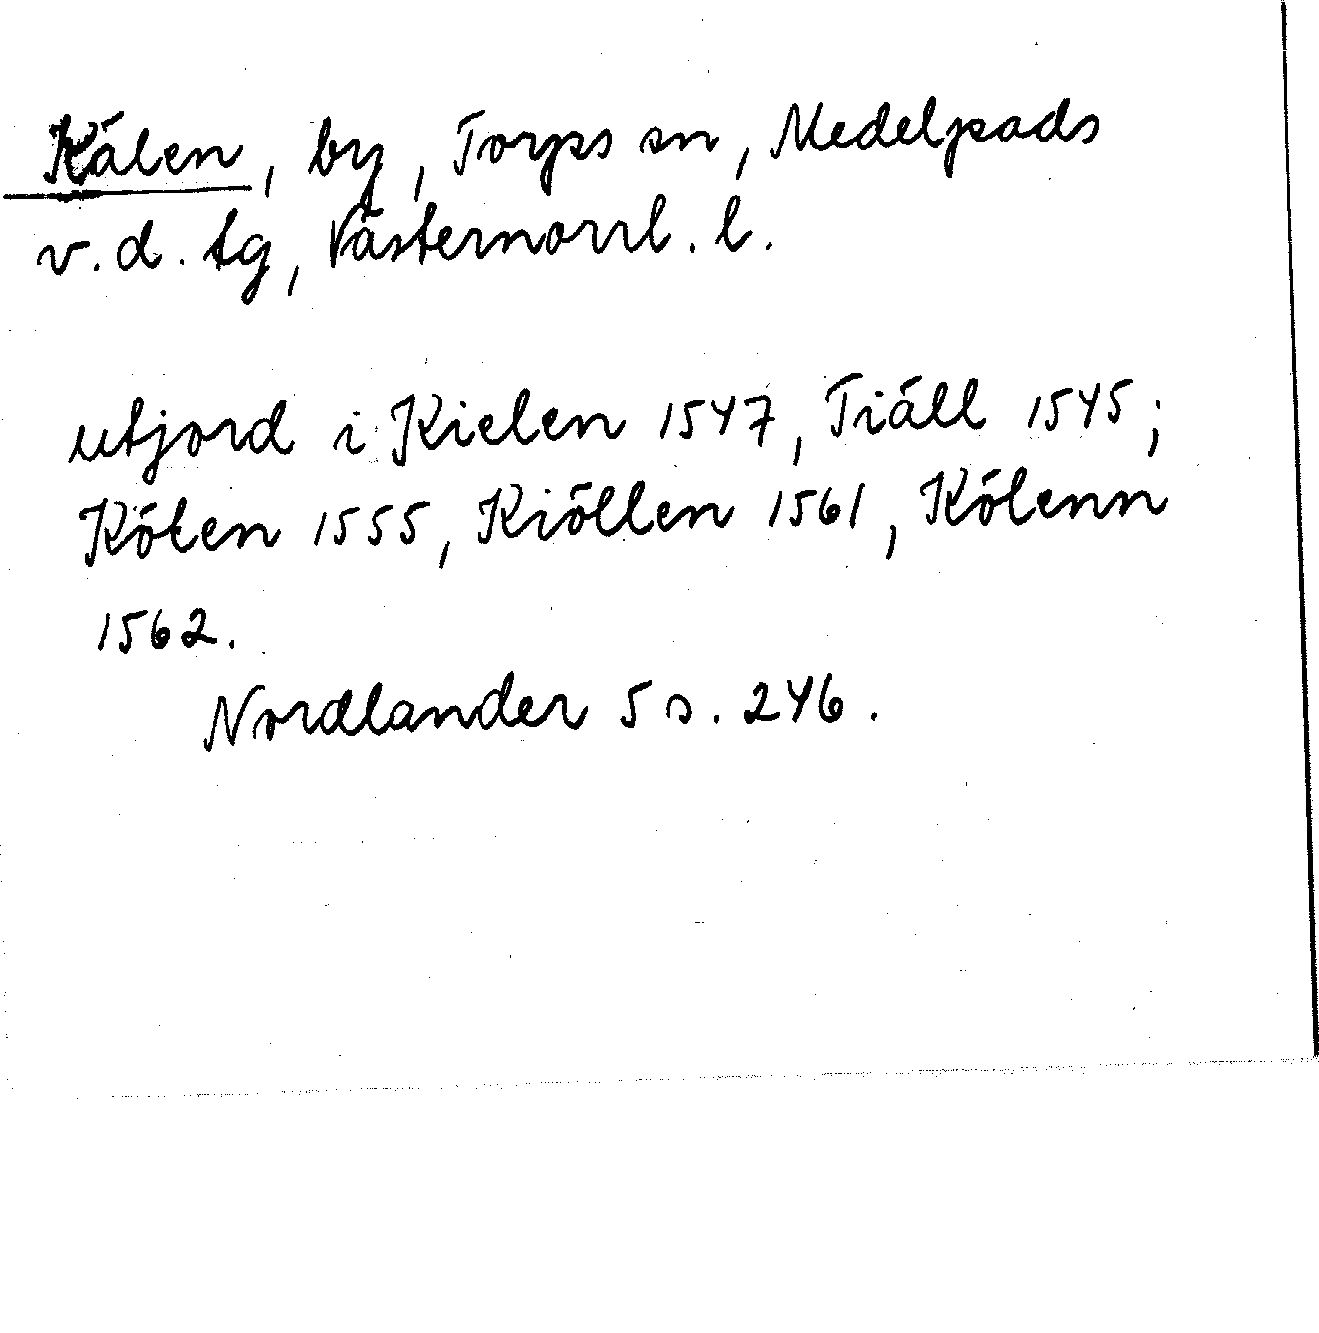 Kälen, by, Torps sn, Medelpads
v.d. tg, Västernorrl. l.
utjord i Kielen 1547, Tiäll 1545;
Kölen 1555, Kiöllen 1561, Kölenn
1562.
Nordlander 5 s. 246.